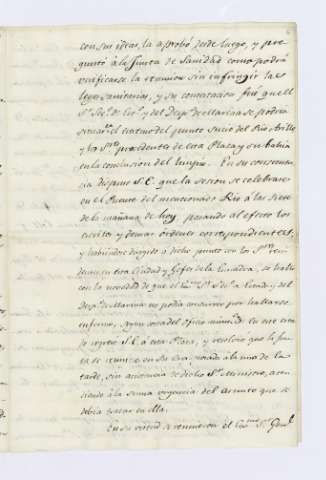 con sus ideas, la aprobó desde luego, y pre-
guntó à la Junta de Sanidad como podrá
verificarse la reunion sin infringir las
leyes sanitarias, y su contestacion fué que el
Sr. Sº. de Esº. y del Desp.º de Marina se podria
situar en el extremo del punto Sucio del Rio Arillo
y los Sres. procedentes de esta Plaza y su bahia
en la conclusion del limpio. En su consecuen-
cia dispuso S. E. que la sesion se celebrase
en el Puente del mencionado Rio à las siete
de la mañana de hoy, pasando al efecto los
escritos y demas órdenes correspondientes,
y habiendose dirigido à dicho punto con los Sres. resi-
dentes en esta Ciudad y Gefes de la Escuadra, se halló
con la novedad de que el Sr. de Estado y del
Desp.º de Marina no podia concurrir por hallarse
enfermo, segun consta del oficio num.º En este caso
se regresó S. E. à esta Plaza, y resolvió que la Jun-
ta se reuniese en su Casa posada à la una de la
tarde, sin asistencia de dicho Sr. Ministro, aten-
diendo à la suma urgencia del asunto que se
debia tratar en ella.
En su virtud se reunieron el Exmo. Sr. Genl.